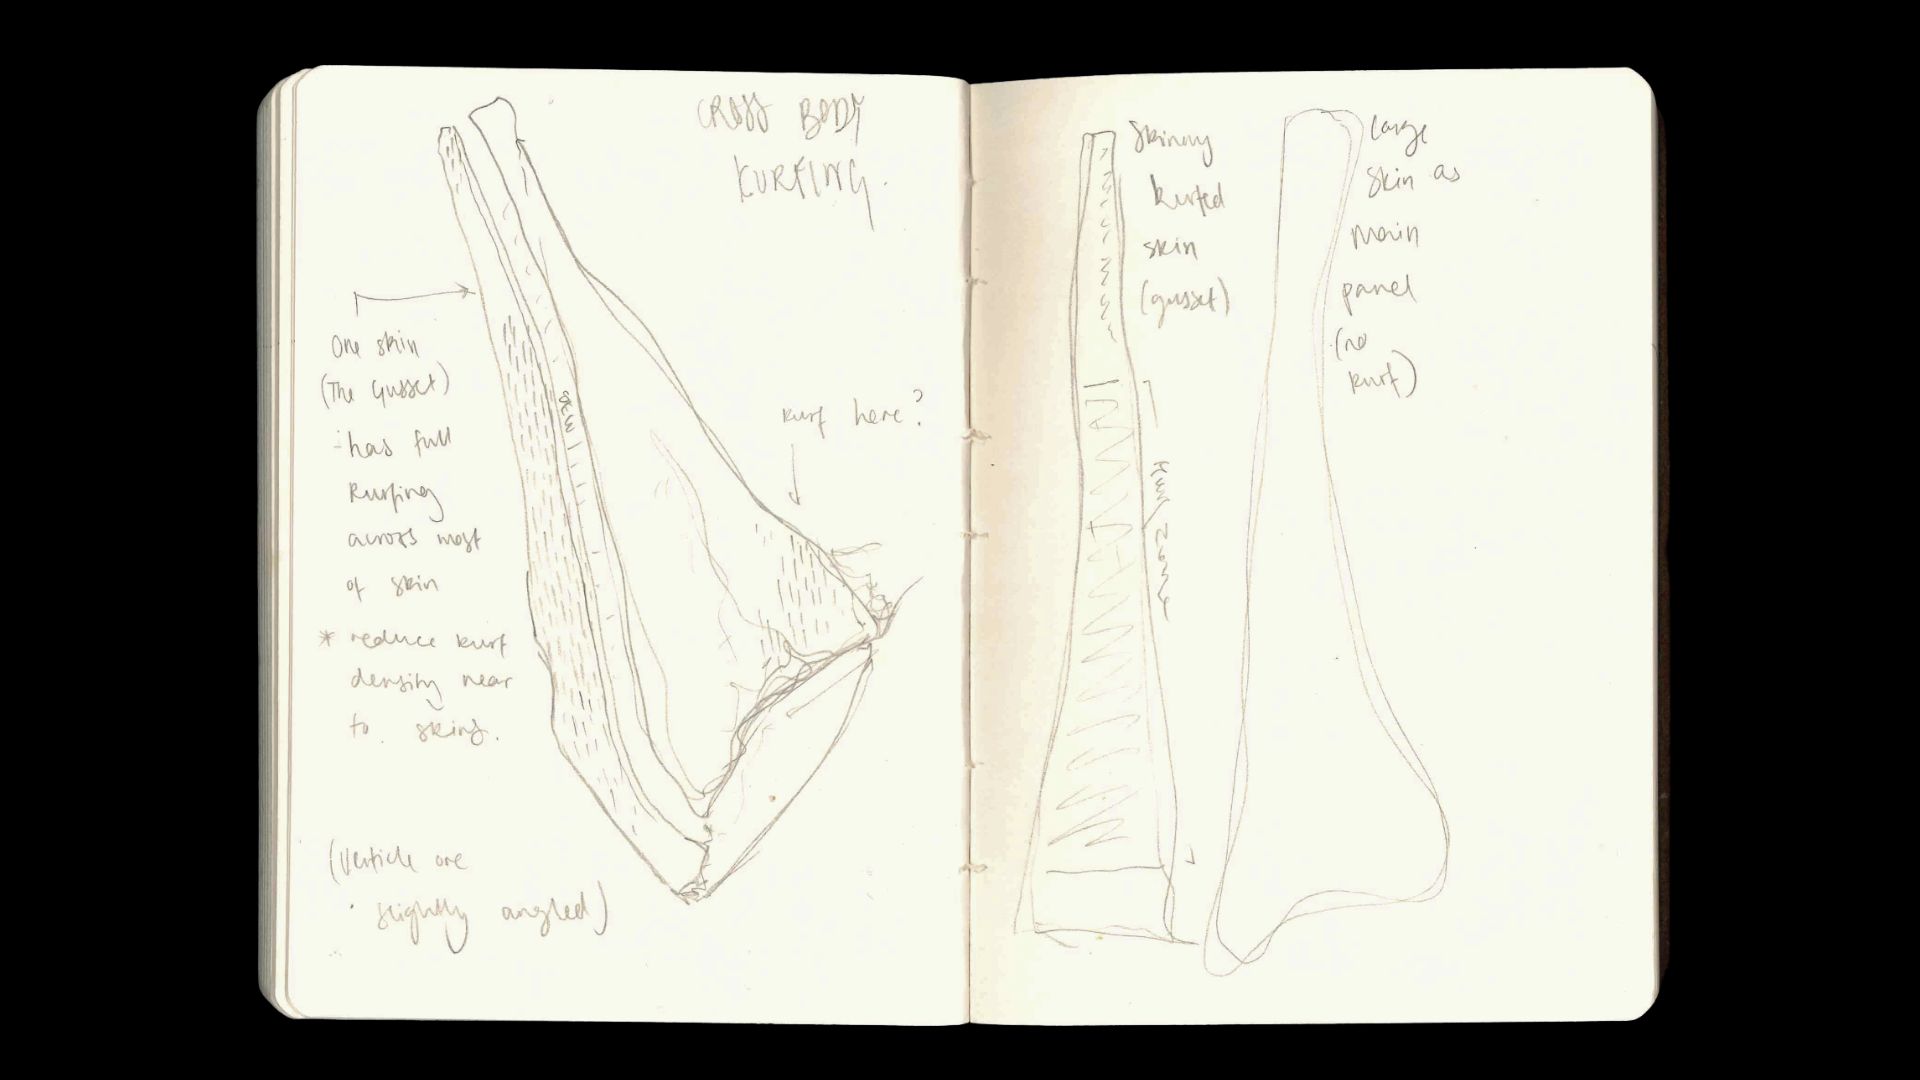 CROSS BODY
KURFING.
One skin
(The Gusset)
-has full
kurfing
across most
of skin
* reduce kurf
density near
to skins.
(Verticle are
slightly angled)
kurf here?
skinny
kurfed
skin
(gusset)
kurf zone
large
skin as
main
panel
(no
kurf)